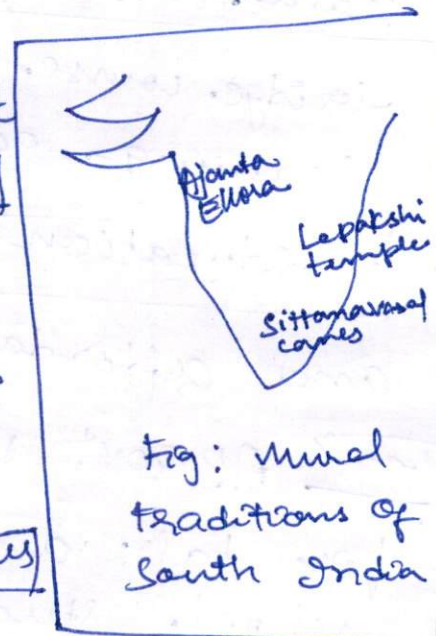 Ajanta
Ellora
Lepakshi
temple
Sittanavasal
caves
Fig: Mural
traditions of
South India